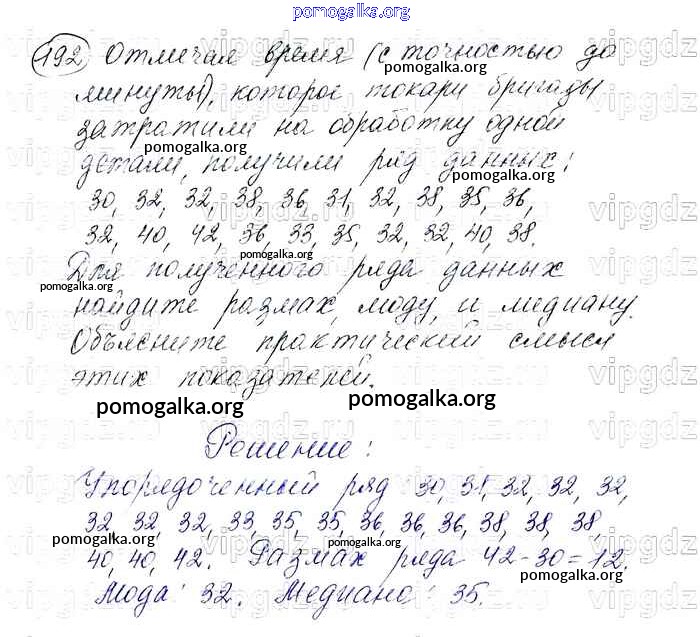 pomogalka.org
192 Отмечая время (с точностью до
pomogalka.org
минуты), которое токари бригады
затратили на обработку одной
pomogalka.org
детали, получили ряд данных:
pomogalka.org
30, 32, 32, 38, 36, 31, 32, 38, 35, 36,
32, 40, 42, 36, 33, 35, 32, 32, 40, 38.
pomogalka.org
Для полученного ряда данных
pomogalka.org
найдите размах, моду, и медиану.
pomogalka.org
Объясните практический смысл
этих показателей.
pomogalka.org pomogalka.org
Решение:
Упорядоченный ряд 30, 31, 32, 32, 32,
32, 32, 32, 33, 35, 35, 36, 36, 36, 38, 38, 38,
pomogalka.org
40, 40, 42. Размах ряда 42-30=12.
pomogalka.org
Мода: 32. Медиана: 35.